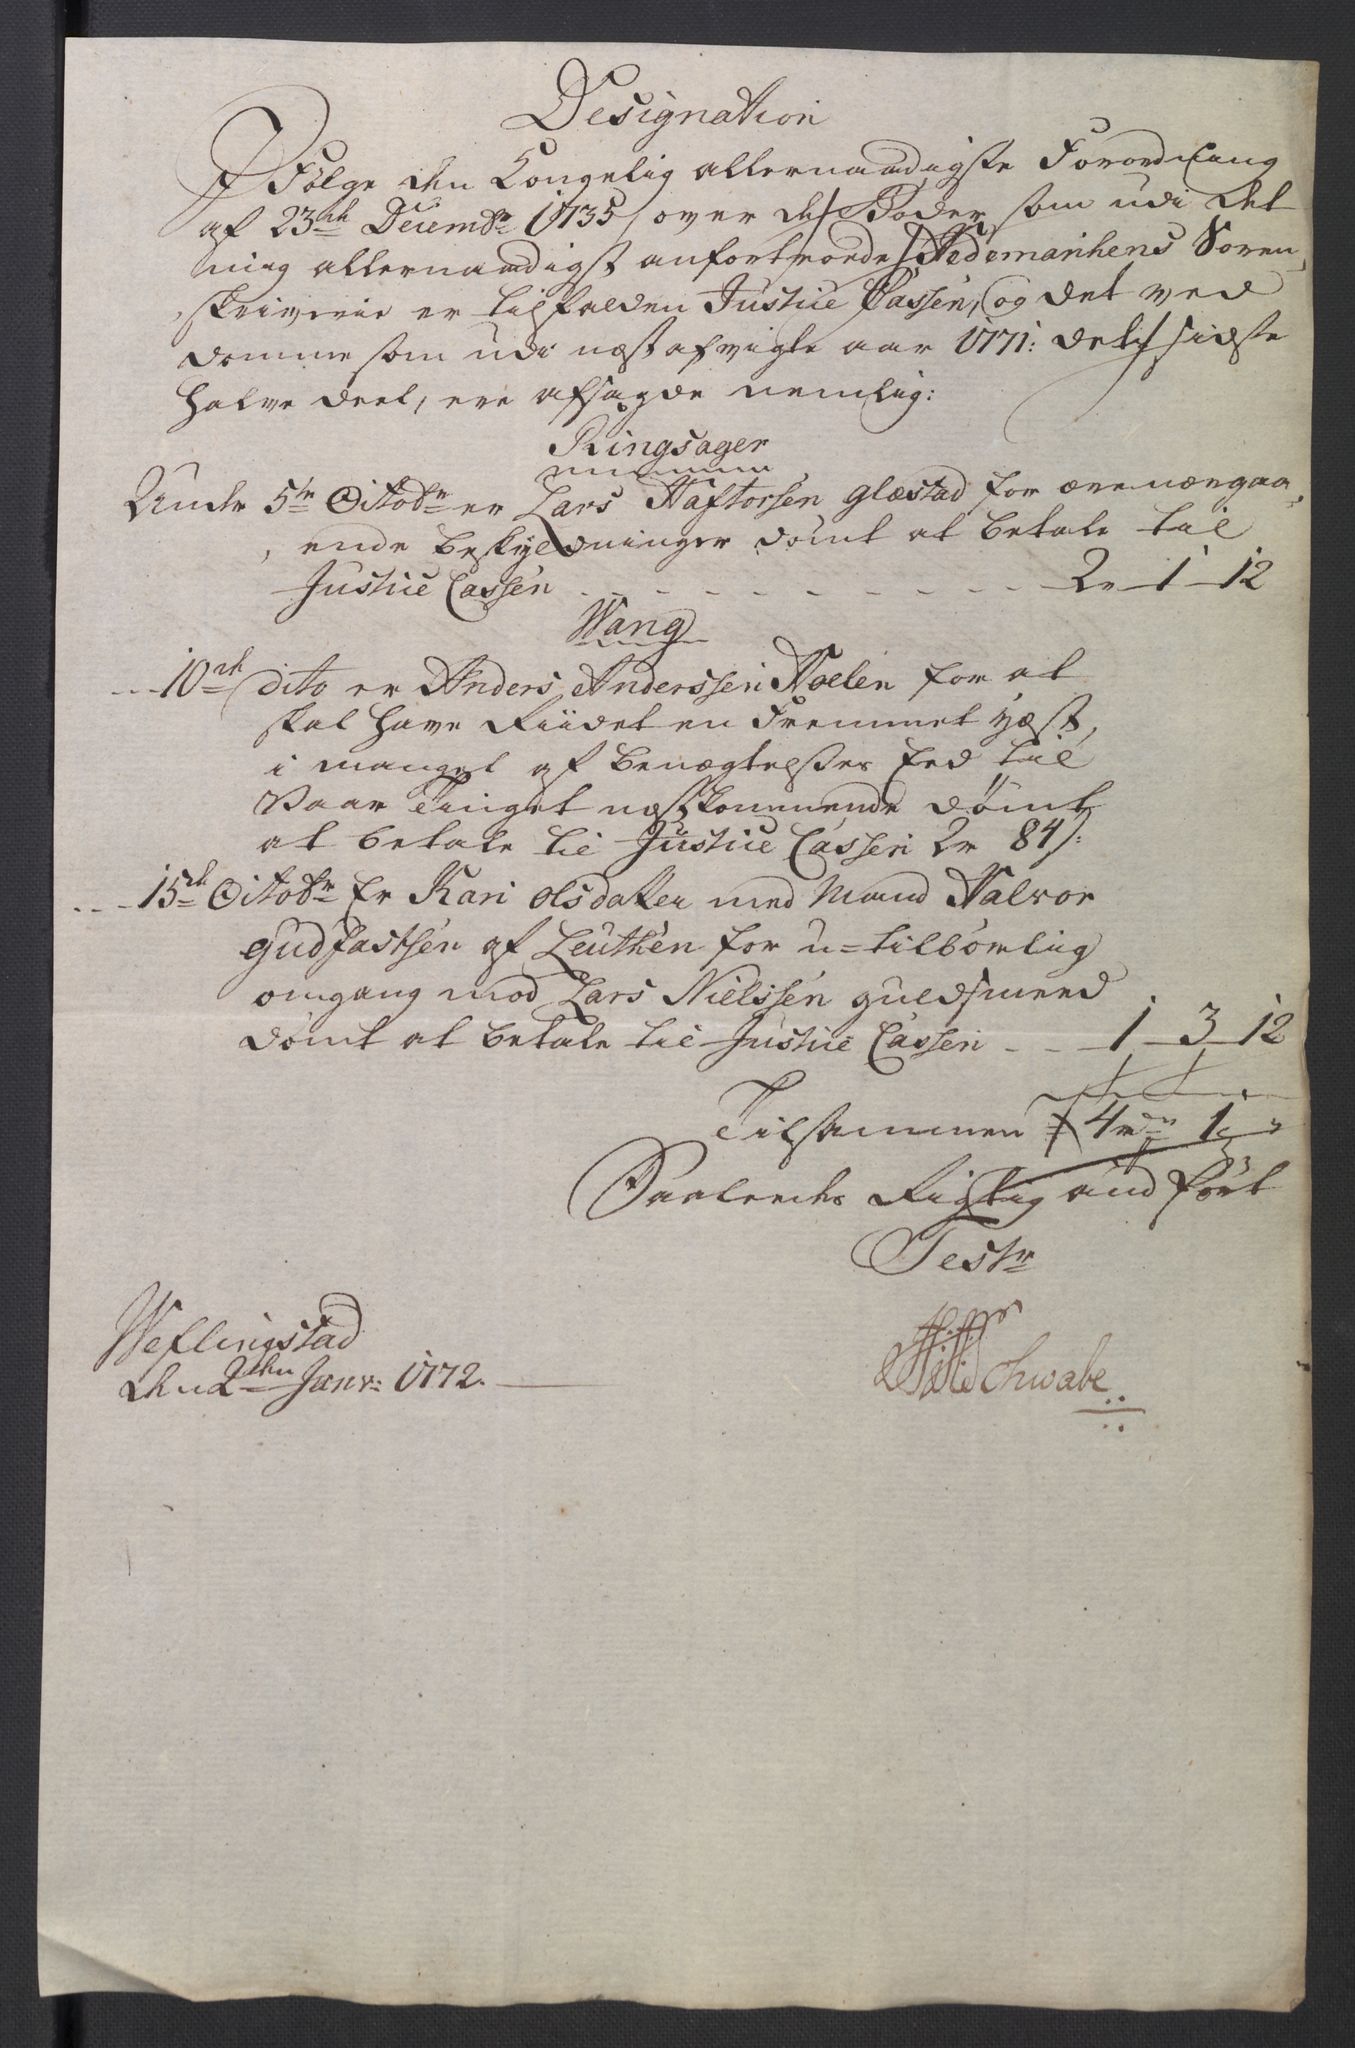 Designation
J Følge den Kongelig allernaadigste Forordning
af 23de Decembr 1735, over de Bøder, som udi det
mig allernaadigst anfortroede Hedemarkens Soren,
skriverie er tilfalden Justice Cassen, og det ved
domme som udi næst afvigte aar 1771: dets sidste
halve deel, ere afsagde nemlig:
Ringsager
Under 5te Octobr er Lars Haftorsen Glæstad for ærenærgaa,
ende beskyldninger dømt at betale til
Justice Cassen - - - 2r 1 12
Wang
- - - 10de dito er Anders Anderssen Hoelen for at
skal have Riidet en Fremmet Hæst,
i mangel af benægtelsses Eed til
Vaar Tinget næstkommende dømt
at betale til Justice Cassen 2r 84s:
- - - 15de Octobr Er Kari Olsdatter med Mand Halvor
Gudfastsen af Leuthen for u=tilbørlig
omgang mod Lars Nielssen Guldsmed
dømt at betale til Justice Cassen - - 1 3 12
Tilsammen 4r 1
Saaledes Rigtig anført
Test
Weflingstad
den 2den Janv: 1772.
Schwabe